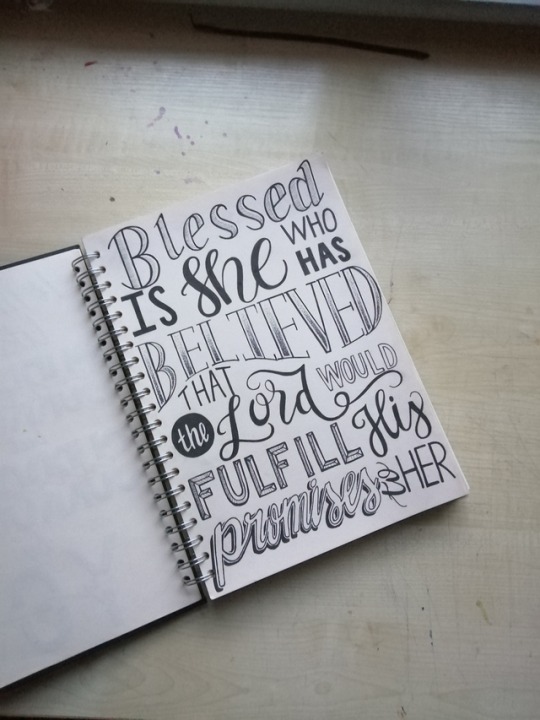 Blessed
IS She WHO HAS
BELIEVED
THAT the Lord WOULD
FULFILL His
promises to HER